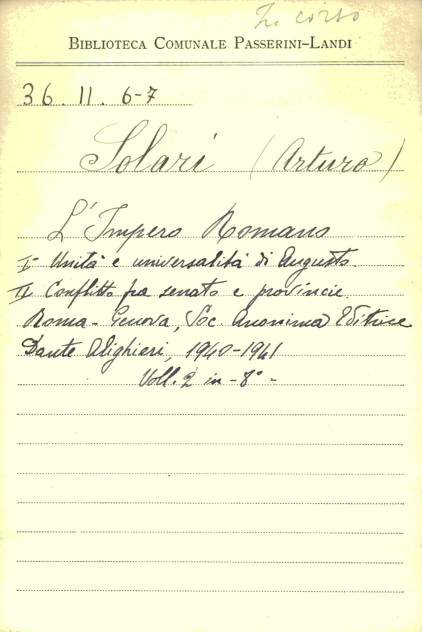 In corso
BIBLIOTECA COMUNALE PASSERINI-LANDI
36. II. 6-7
Solari (Arturo)
L'Impero Romano
I° Unità e universalità di Augusto.
II Conflitto fra senato e provincie.
Roma-Genova, Soc. Anonima Editrice
Dante Alighieri, 1940-1941
Voll. 2 in-8° -